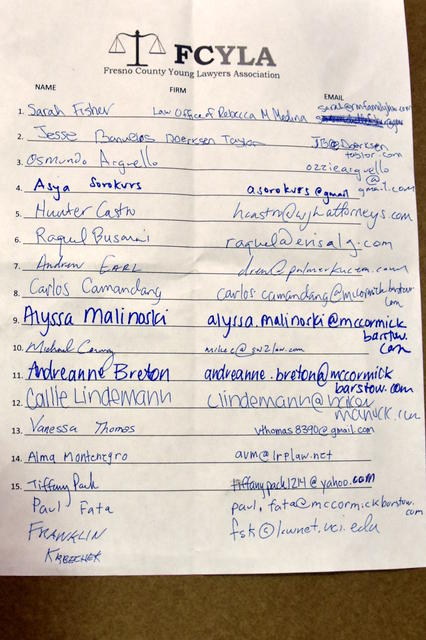 FCYLA
Fresno County Young Lawyers Association
NAME FIRM EMAIL
1. Sarah Fisher Law Office of Rebecca M Medina sarah@rmfamilylaw.com
2. Jesse Banuelos Doerksen Taylor JB@Doerksen
taylor.com
3. Osmundo Arguello ozziearguello
@
gmail.com
4. Asya Sorokurs asorokurs@gmail
5. Hunter Castro hcastro@wjhattorneys.com
6. Raquel Busani raquel@erisalg.com
7. Andrew EARL drew@palmerkazem.com
8. Carlos Camandang carlos.camandang@mccormick.barstow.
com
9. Alyssa Malinoski alyssa.malinoski@mccormick
barstow.
com
10. Michael mikec@sw2law.com
11. Andreanne Breton andreanne.breton@mccormick
barstow.com
12. Callie Lindemann clindemann@
13. Vanessa Thomas vthomas8390@gmail.com
14. Alma Montenegro avm@lrplaw.net
15. Tiffany Pack tiffanypack1214@yahoo.com
Paul Fata paul.fata@mccormickbarstow.
com
FRANKLIN fsk@lawnet.uci.edu